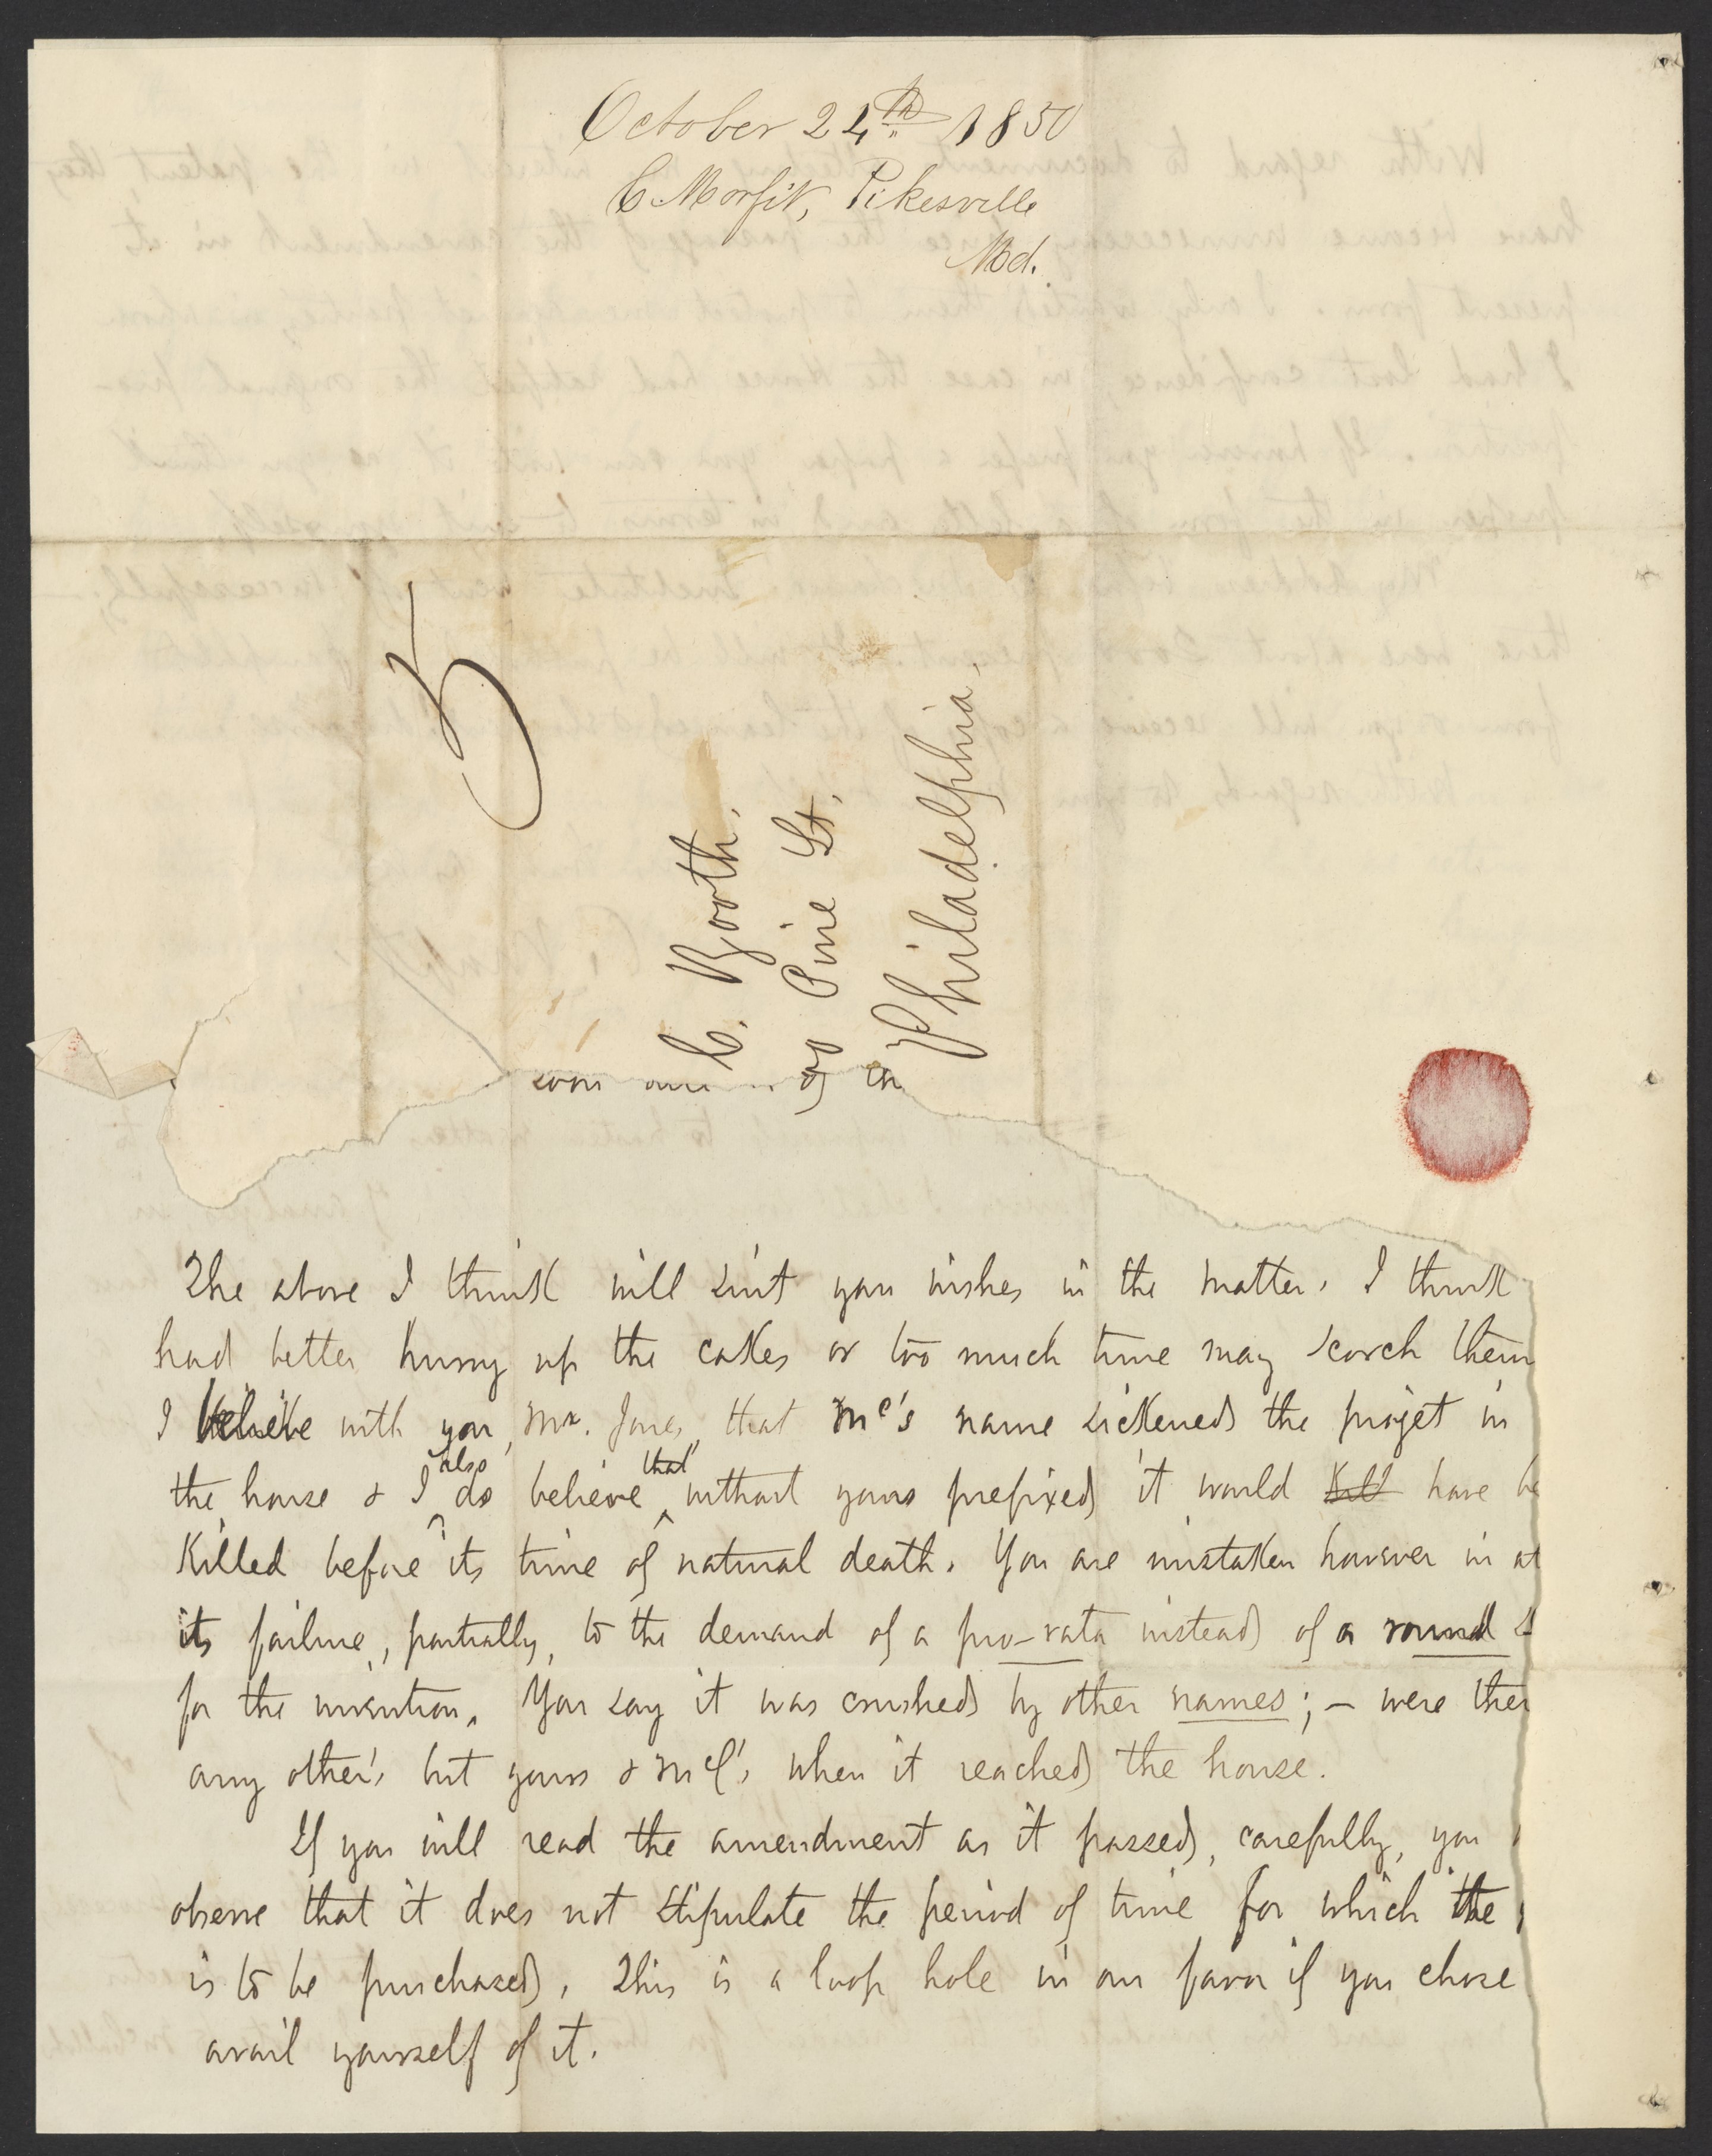 October 24th 1850
C Morfit, Pikesville
Md.
5
C. Booth.
Pine St.
Philadelphia.
The above I think will suit your wishes in the matter. I think
had better hurry up the cakes or too much time may scorch them
I believe with you, Mr. Jones, that Mc's name sickened the projet in
the house & I also do believe that without yours prefixed it would Kill have be
Killed before its time of natural death. You are mistaken however in at
its failure, partially, to the demand of a pro-rata instead of a round s
for the invention. You say it was crushed by other names; – were ther
any other's but yours & McC's when it reached the house.
If you will read the amendment as it passed, carefully, you
observe that it does not stipulate the period of time for which the
is to be purchased. This is a loop hole in our favor if you chose
avail yourself of it.